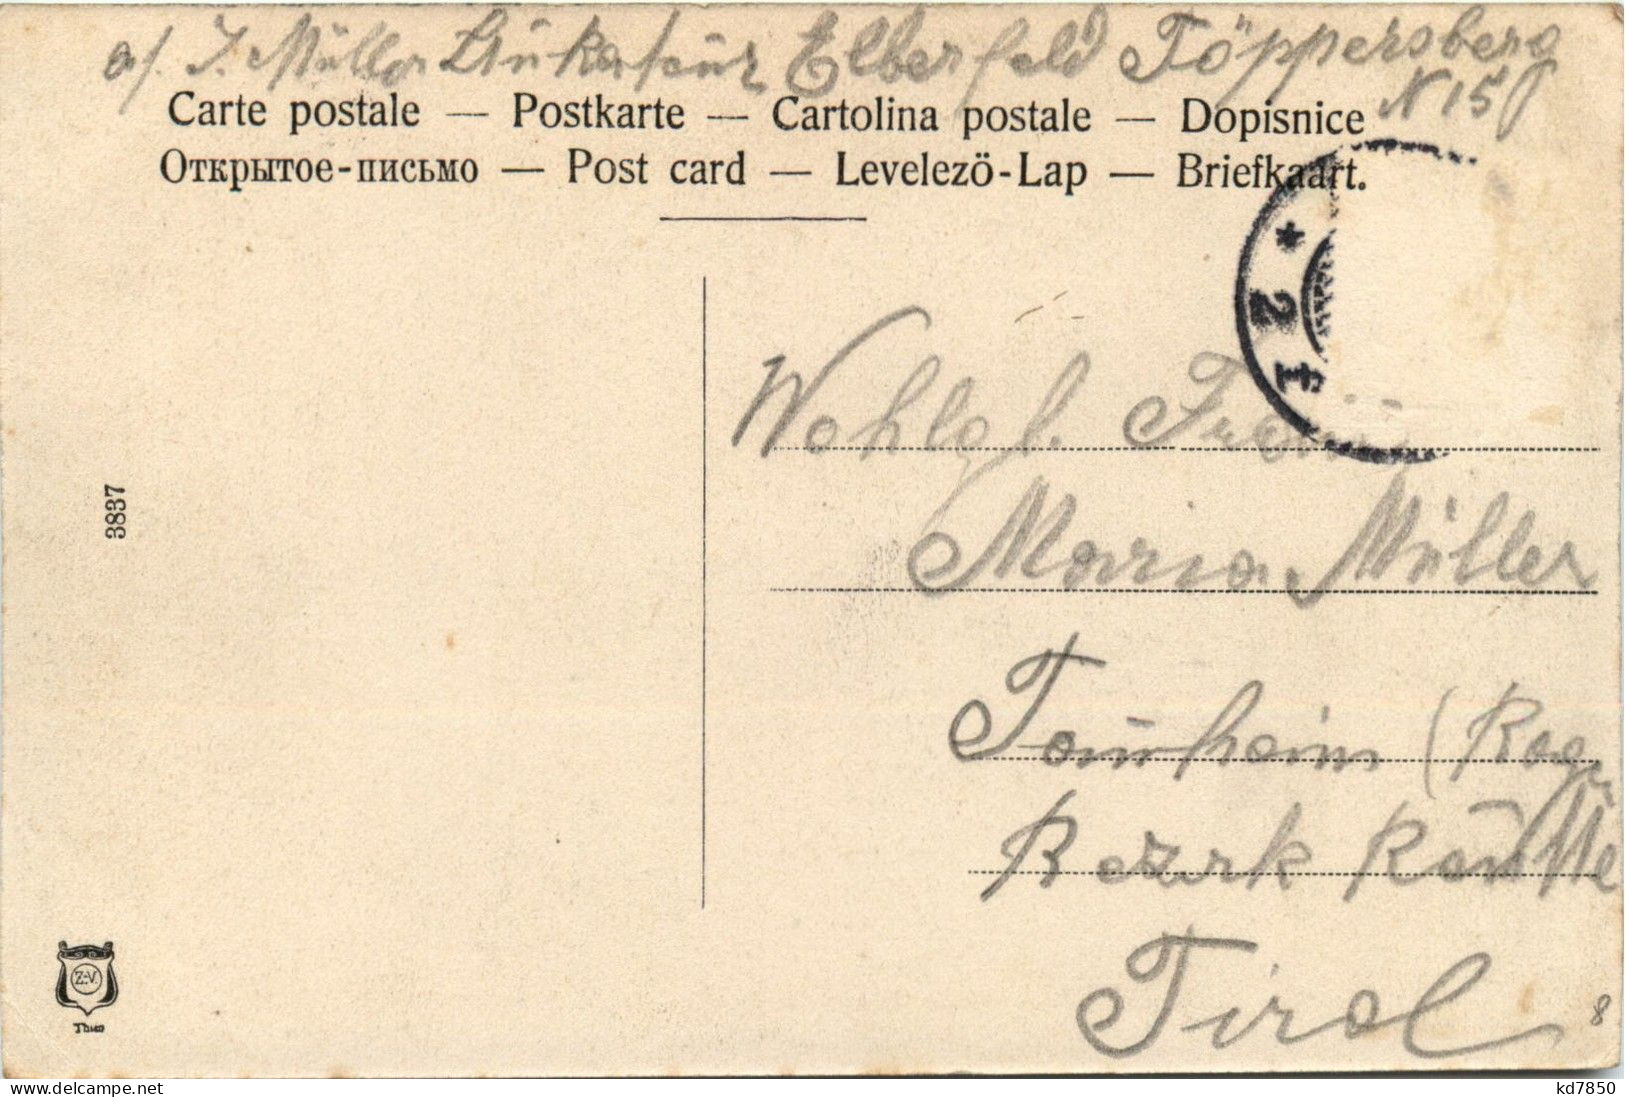 a/. J. Müller Stukateur Elberfeld Töppersberg
N 15
Carte postale — Postkarte — Cartolina postale — Dopisnice
Открытое-письмо — Post card — Levelezö-Lap — Briefkaart.
* 2 f
Wohlgl. Frau
Maria Müller
Tannheim (Rag
Bezirk Reutte
Tirol
3837
Z.-V.
Thien
8
delcampe.net
kd7850